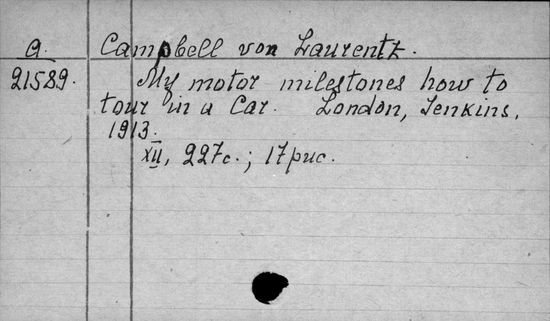 a
Campbell von Laurentz.
21589.
My motor milestones how to
tour in a Car. London, Jenkins,
1913.
XII, 227c.; 17рис.